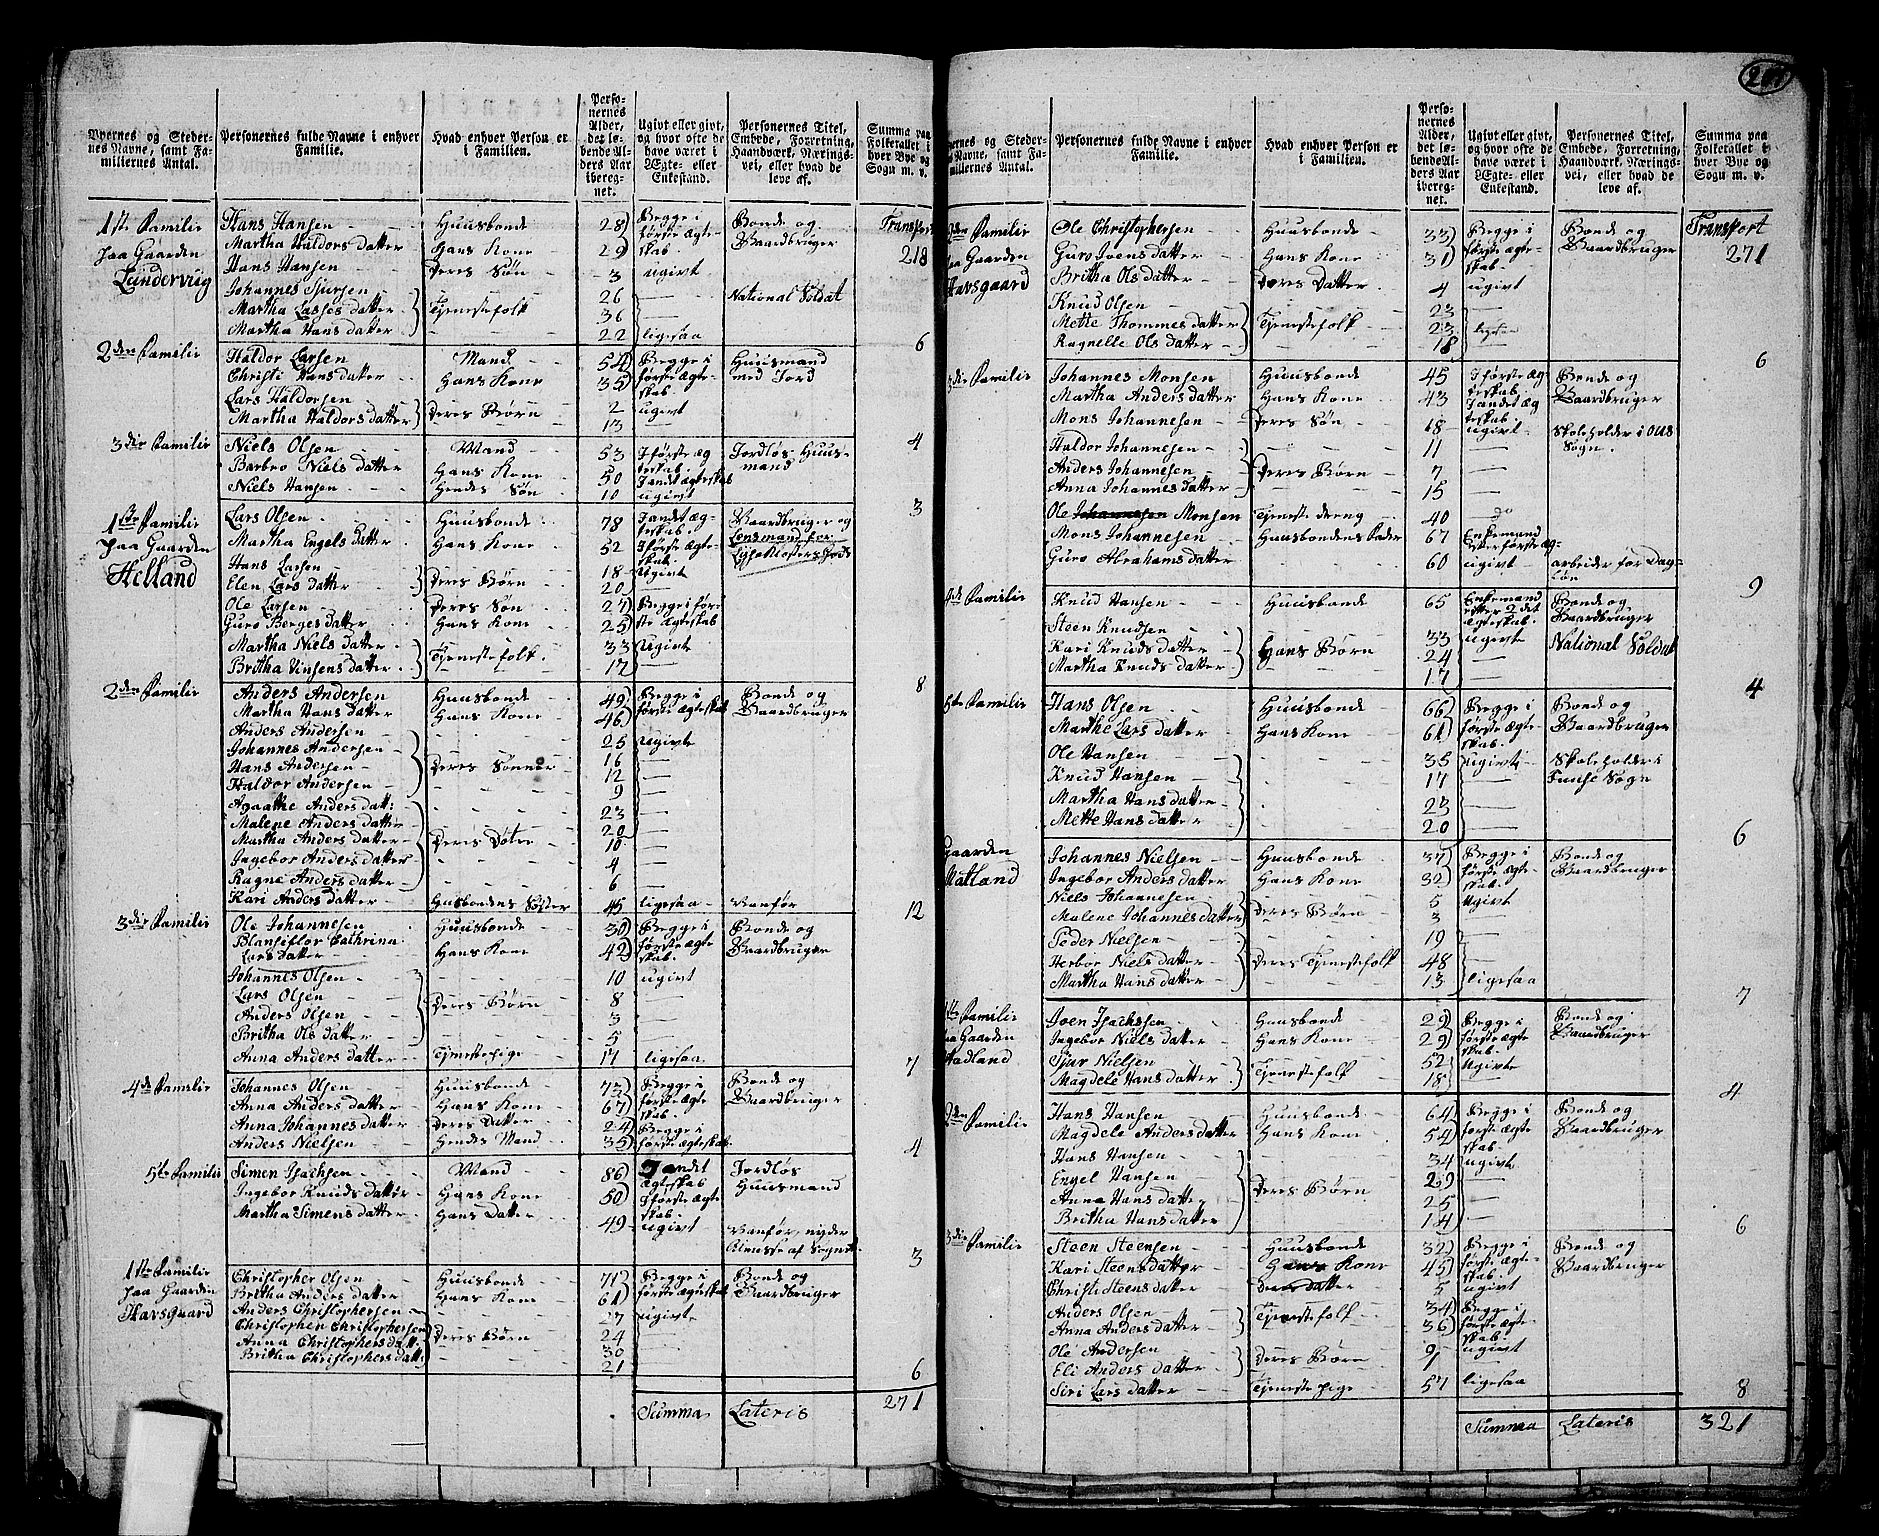 Byernes og Steder-
nes Navne, samt Fa-
miliernes Antal.
Personernes fulde Navne i enhver
Familie.
Hvad enhver Person er
i Familien.
Perso-
nernes
Alder,
det lø-
bende Al-
ders Aar
iberegnet.
Ugivt eller givt,
og hvor ofte de
have været i
Ægte- eller
Enkestand.
Personernes Titel,
Embede, Forretning,
Haandværk, Nærings-
vei, eller hvad de
leve af.
Summa paa
Folketallet i
hver Bye og
Sogn m. v.
Transport 218
1ste Familie paa Gaarden Lundervug
Hans Hansen Huusbonde 28 Begge i første ægteskab Bonde og Gaardbruger
Martha Haldors datter Hans Kone 29
Hans Hansen Deres Søn 3 ugivt
Johannes Sjursen Tjenestefolk 26 — National Soldat
Martha Lasses datter 36 —
Martha Hans datter 22 ligesaa
6
2den Familie
Haldor Larsen Mand 54 Begge i første ægteskab. Huusmand med Jord
Christi Hans datter Hans Kone 35
Lars Haldorsen Deres Børn 2 ugivt
Martha Haldors datter 13 —
4
3die Familie
Niels Olsen Mand 53 I første ægteskab. Jordløs Huusmand
Barbro Niels datter Hans Kone 50 I andet ægteskab
Niels Hansen Hendes Søn 10 ugivt
3
1ste Familie paa Gaarden Helland
Lars Olsen Huusbonde 78 I andet ægteskab. Gaardbruger og Lensmand for Lysekloster Gods
Martha Engels datter Hans Kone 52 I første ægteskab
Hans Larsen Deres Børn 18 Ugivt
Elen Lars datter 20 —
Ole Larsen Deres Søn 27 Begge i første ægteskab
Guro Berges datter Hans Kone 25
Martha Niels datter Tjenestefolk 33 Ugivt
Britha Vinsens datter 17 —
8
2den Familie
Anders Andersen Huusbonde 49 Begge i første ægteskab Bonde og Gaardbruger
Martha Hans datter Hans Kone 46
Anders Andersen 25 Ugivt
Johannes Andersen 16 —
Hans Andersen Deres Sønner 12 —
Haldor Andersen 9 —
Agaathe Anders datt: 23 —
Malene Anders datter 20 —
Martha Anders datter Deres Døtre 10 —
Ingebor Anders datter 4 —
Ragne Anders datter 6 —
Kari Anders datter Husbondens Søster 45 ligesaa Vanfør
12
3die Familie
Ole Johannesen Huusbonde 30 Begge i første ægteskab. Bonde og Gaardbruger
Blansiflor Cathrina Lars datter Hans Kone 42
Johannes Olsen 10 ugivt
Lars Olsen Deres Børn 8 —
Anders Olsen 3 —
Britha Ols datter 5 —
Anna Anders datter Tjenestepige 17 ligesaa
7
4de Familie
Johannes Olsen Huusbonde 73 Begge i første ægteskab. Bonde og Gaardbruger
Anna Anders datter Hans Kone 67
Anna Johannes datter Deres Datter 24 Begge i første ægteskab
Anders Nielsen Hendes Mand 35
4
5te Familie
Simen Isachsen Mand 86 I andet ægteskab Jordløs Huusmand
Ingebor Knuds datter Hans Kone 50 I første ægteskab.
Martha Simens datter Hans Datter 49 ugivt Vanfør, nyder Almisse af Sognet.
3
1ste Familie paa Gaarden Havsgaard
Christopher Olsen Huusbonde 71 Begge i første ægteskab Bonde og Gaardbruger
Britha Anders datter Hans Kone 61
Anders Christophersen 27 ugivt
Christophen Christophersen Deres Børn 24
Anna Christophers datt. 30
Britha Christophers datt: 21
6
Summa Lateris 271
Byernes og Steder-
nes Navne, samt Fa-
miliernes Antal.
Personernes fulde Navne i enhver
Familie.
Hvad enhver Person er
i Familien.
Perso-
nernes
Alder,
det lø-
bende Al-
ders Aar
iberegnet.
Ugivt eller givt,
og hvor ofte de
have været i
Ægte- eller
Enkestand.
Personernes Titel,
Embede, Forretning,
Haandværk, Nærings-
vei, eller hvad de
leve af.
Summa paa
Folketallet i
hver Bye og
Sogn m. v.
Transport 271
2den Familie paa Gaarden Havsgaard
Ole Christophersen Huusbonde 33 Begge i første ægteskab. Bonde og Gaardbruger
Guro Ivens datter Hans Kone 31
Britha Ols datter Deres Datter 4 ugivt
Knud Olsen Tjenestefolk 23 —
Mette Thommes datter 23 liges—
Ragnelle Ols datter 18 —
6
3die Familie
Johannes Monsen Huusbonde 45 I første ægteskab Bonde og Gaardbruger
Martha Anders datter Hans Kone 43 I andet ægteskab
Mons Johannesen Deres Søn 18 ugivt Skoleholder i Ous Sogn.
Haldor Johannesen 11 —
Anders Johannesen Deres Børn 7 —
Anna Johannes datter 15 —
Ole Johannesen Monsen Tjeneste dreng 40 do
Mons Johannesen Huusbondens Fader 67 Enkemand efter første æg-
Guro Abrahams datter 60 ugivt arbeider for Dagløn
9
4de Familie
Knud Hansen Huusbonde 65 Enkemand efter 2 det ægteskab. Bonde og Gaardbruger
Steen Knudsen 33 ugivt National Soldat
Kari Knuds datter Hans Børn 24 —
Martha Knuds datter 17 —
4
5te Familie
Hans Olsen Huusbonde 66 Begge i første ægteskab. Bonde og Gaardbruger
Marthe Lars datter Hans Kone 61
Ole Hansen 35 ugivt Skoleholder i Fuuse Sogn
Knud Hansen 17
Martha Hans datter 23 —
Mette Hans datter 20 —
6
Gaarden Matland
Johannes Nielsen Huusbonde 37 Begge i første ægteskab. Bonde og Gaardbruger
Ingebor Anders datter Hans Kone 32
Niels Johannesen Deres Børn 5 Ugivt
Malene Johannes datter 3 —
Peder Nielsen 19 —
Herbor Niels datter Deres Tjenestefolk 48 —
Martha Hans datter 13 ligesaa
7
1ste Familie paa Gaarden Hadland
Joen Isachssen Huusbonde 29 Begge i første ægteskab. Bonde og Gaardbruger
Ingebor Niels datter Hans Kone 29
Sjur Nielsen Tjenestefolk 52 Ugivte
Magdele Hans datter 18
4
2den Familie
Hans Hansen Huusbonde 64 Begge i første ægteskab. Bonde og Gaardbruger
Magdele Anders datter Hans Kone 54
Hans Hansen 34 ugivt
Engel Hansen Deres Børn 29 —
Anna Hans datter 25 —
Britha Hans datter 14 —
6
3die Familie
Steen Steensen Huusbonde 32 Begge i første ægteskab. Bonde og Gaardbruger
Kari Steens datter Hans Kone 45
Christi Steens datter Deres datter 5 ugivt
Anders Olsen Tjenestefolk 34 Begge i første ægteskab.
Anna Anders datter 36
Ole Andersen Deres Børn 9 ugivt
Eli Anders datter 1 —
Siri Lars datter Tjeneste pige 57 ligesaa
8
Summa Lateris 321